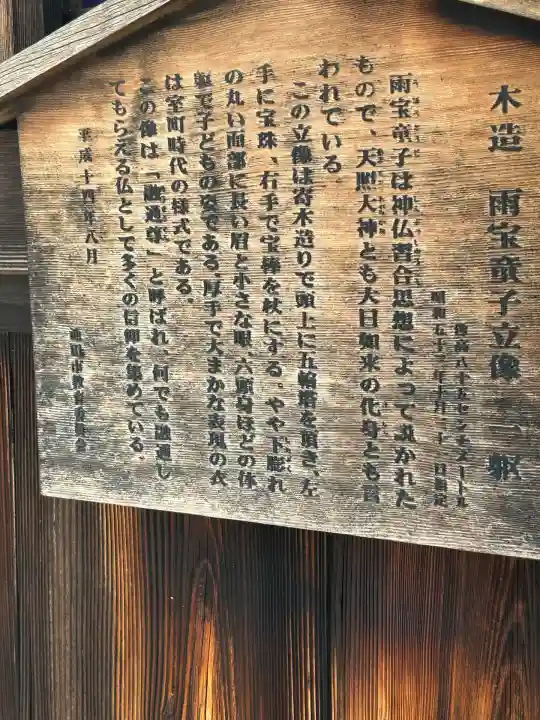 木造 雨宝童子立像 一躯
像高八十五センチメートル
昭和五十 年 月二十 日指定
雨宝童子は神仏習合思想によって説かれた
もので、天照大神とも大日如来の化身とも言
われている。
この立像は寄木造りで頭上に五輪塔を頂き、左
手に宝珠、右手で宝棒を杖にする。やや下膨れ
の丸い面部に長い眉と小さな眼、六頭身ほどの体
躯で子どもの姿である。厚手で大まかな表現の衣
は室町時代の様式である。
この像は「融通尊」と呼ばれ、何でも融通し
てもらえる仏として多くの信仰を集めている。
平成十四年八月
市教育委員会